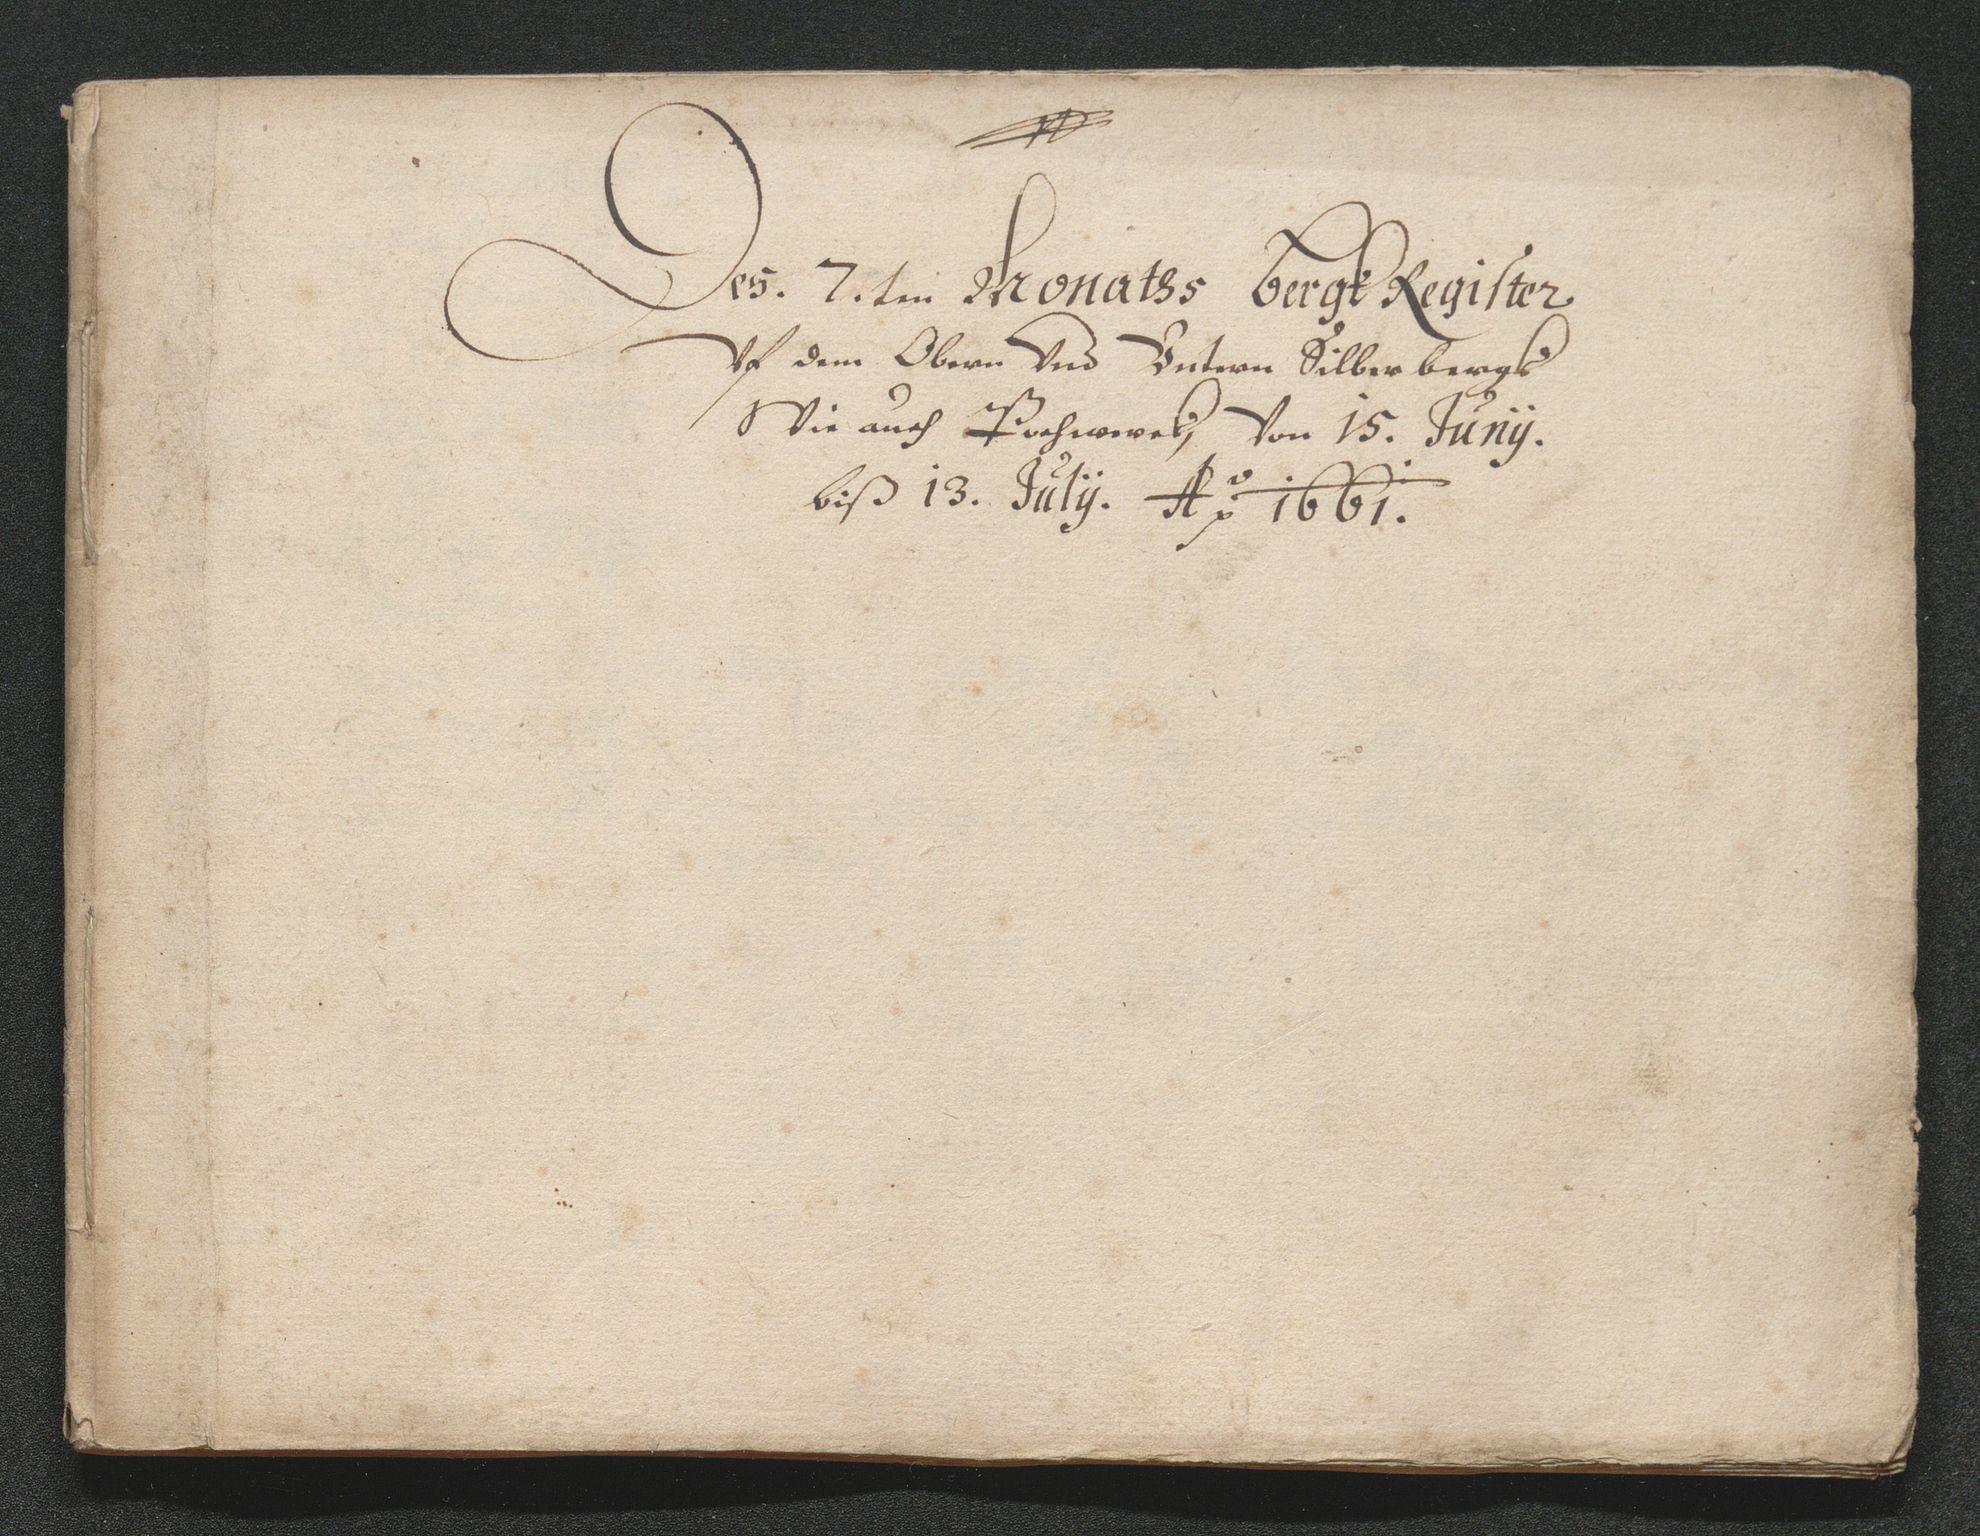 Des. 7.ten Monaths bergk Register
Vf dem Obern Vnd Vntern Silber bergk
Wie auch Pochwerck, Von 15. Junij.
biß 13. Julij. Ao 1661.